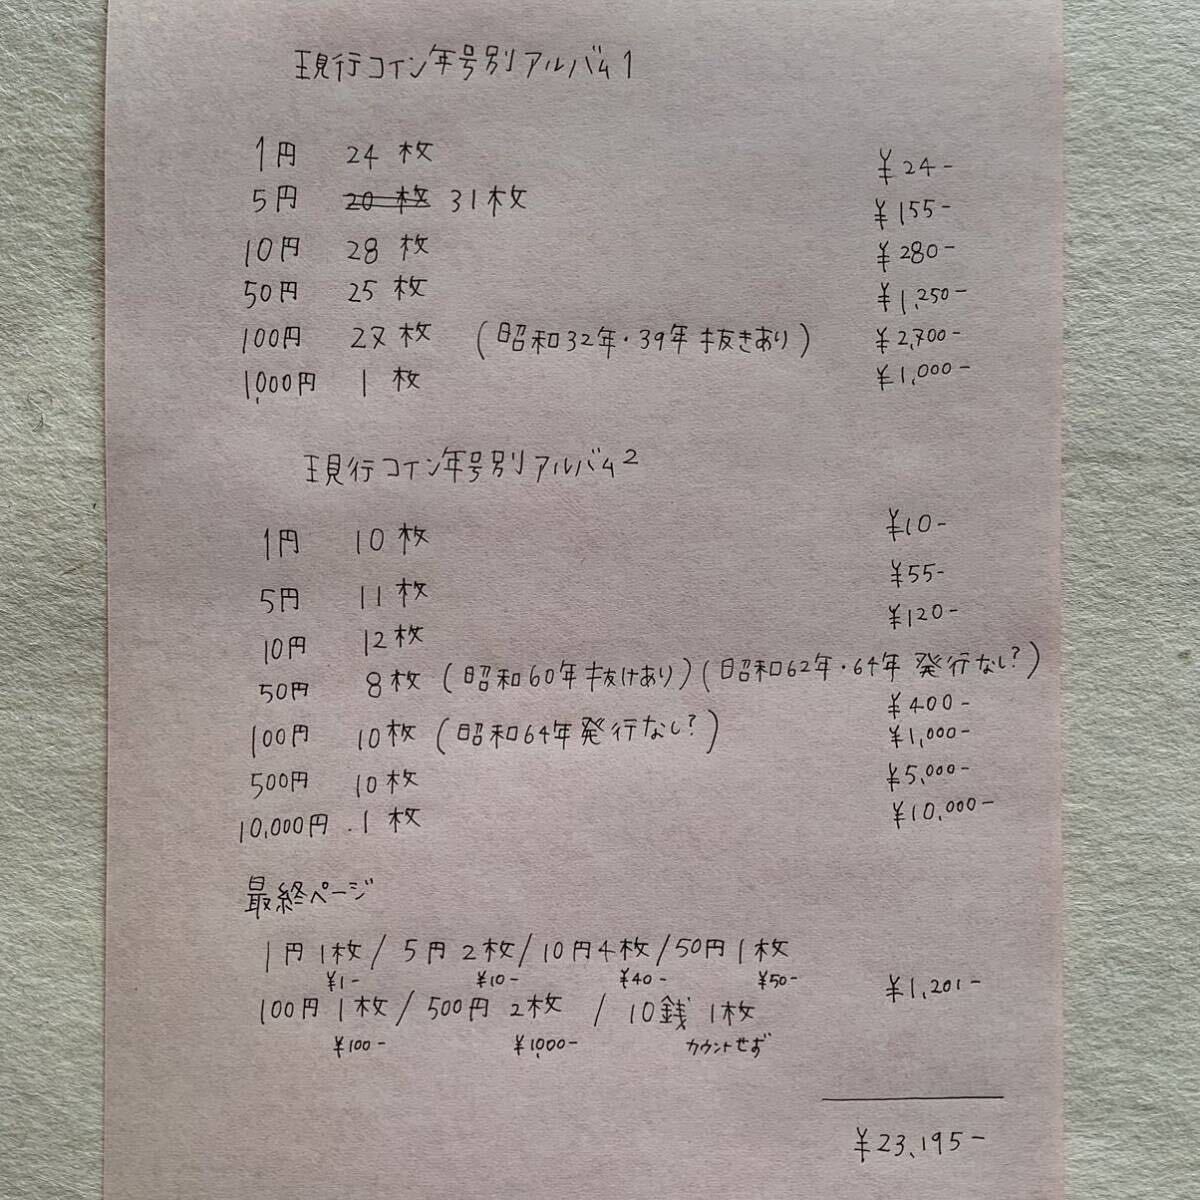 現行コイン年号別アルバム1
1円 24枚 ¥24-
5円 20枚 31枚 ¥155-
10円 28枚 ¥280-
50円 25枚 ¥1,250-
100円 27枚 (昭和32年・39年抜きあり) ¥2,700-
1,000円 1枚 ¥1,000-
現行コイン年号別アルバム2
1円 10枚 ¥10-
5円 11枚 ¥55-
10円 12枚 ¥120-
50円 8枚 (昭和60年抜けあり)(昭和62年・64年発行なし?) ¥400-
100円 10枚 (昭和64年発行なし?) ¥1,000-
500円 10枚 ¥5,000-
10,000円 1枚 ¥10,000-
最終ページ
1円 1枚 / 5円 2枚 / 10円 4枚 / 50円 1枚
¥1- ¥10- ¥40- ¥50- ¥1,201-
100円 1枚 / 500円 2枚 / 10銭 1枚
¥100- ¥1,000- カウントせず
¥23,195-